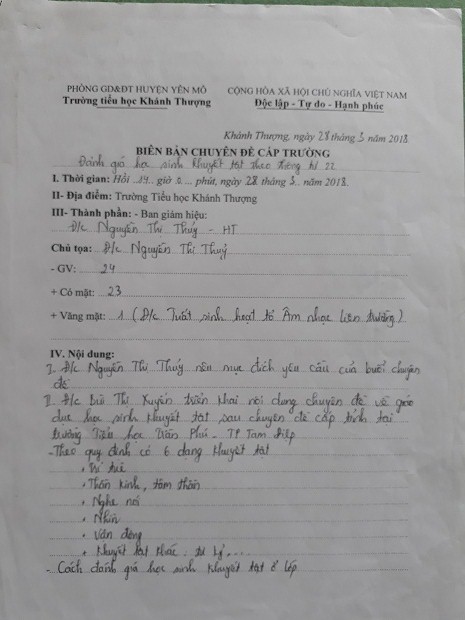 PHÒNG GD&ĐT HUYỆN YÊN MÔ
Trường tiểu học Khánh Thượng
CỘNG HÒA XÃ HỘI CHỦ NGHĨA VIỆT NAM
Độc lập - Tự do - Hạnh phúc
Khánh Thượng, ngày 28 tháng 3 năm 2018
BIÊN BẢN CHUYÊN ĐỀ CẤP TRƯỜNG
Đánh giá học sinh khuyết tật theo thông tư 22
I. Thời gian: Hồi 14 giờ 0 phút, ngày 28 tháng 3 năm 2018
II- Địa điểm: Trường Tiểu học Khánh Thượng
III- Thành phần: - Ban giám hiệu:
Đ/c Nguyễn Thị Thuý - HT
Chủ tọa: Đ/c Nguyễn Thị Thuý
- GV: 24
+ Có mặt: 23
+ Vắng mặt: 1 (Đ/c Tuất sinh hoạt tổ Âm nhạc liên trường)
IV. Nội dung:
I. Đ/c Nguyễn Thị Thuý nêu mục đích yêu cầu của buổi chuyên
đề
II. Đ/c Thị Xuyên triển khai nội dung chuyên đề về giáo
dục học sinh khuyết tật sau chuyên đề cấp tỉnh tại
trường Tiểu học Trần Phú - TP Tam Điệp
- Theo quy định có 6 dạng khuyết tật
+ Trí tuệ
+ Thần kinh, tâm thần
+ Nghe nói
+ Nhìn
+ Vận động
+ Khuyết tật khác: tự kỷ, ...
- Cách đánh giá học sinh khuyết tật ở lớp